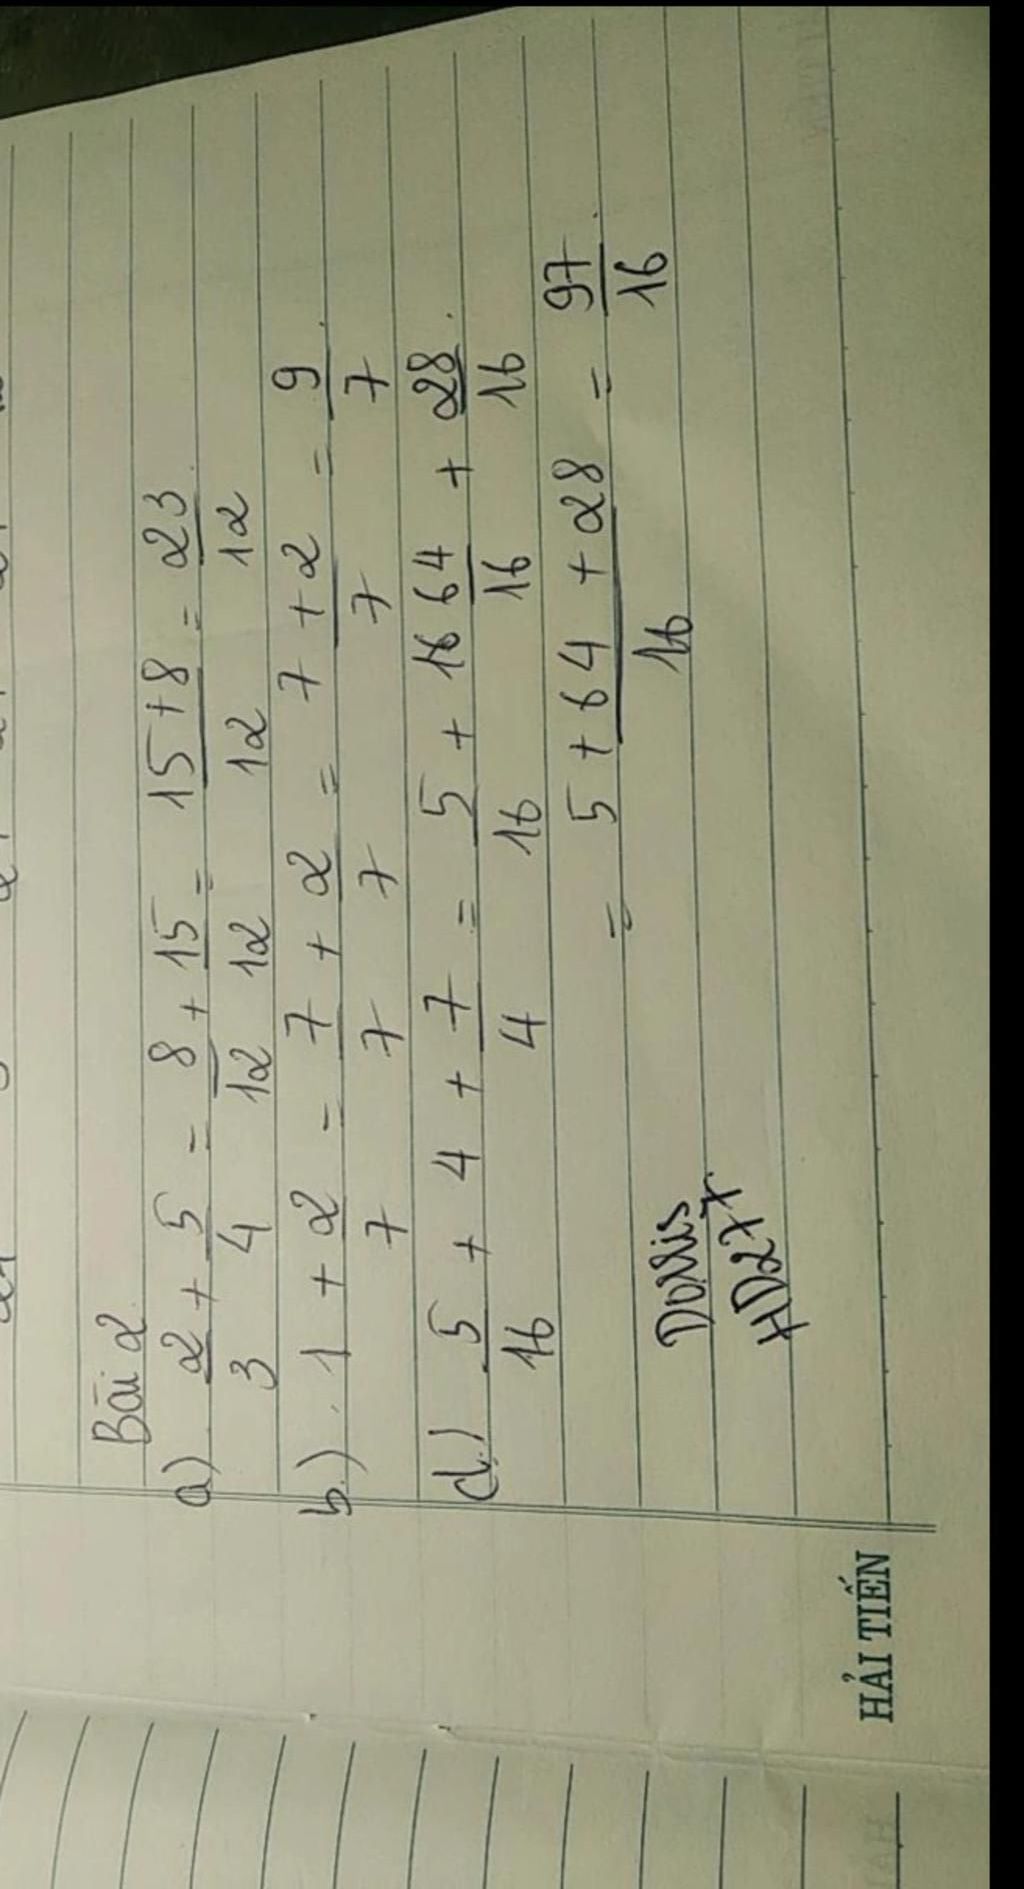 Bài 2
a) 2/3 + 5/4 = 8/12 + 15/12 = 15+8/12 = 23/12
b) 1 + 2/7 = 7/7 + 2/7 = 7+2/7 = 9/7
d) 5/16 + 4 + 7/4 = 5/16 + 64/16 + 28/16
= 5+64+28/16 = 97/16
HD277
HẢI TIẾN